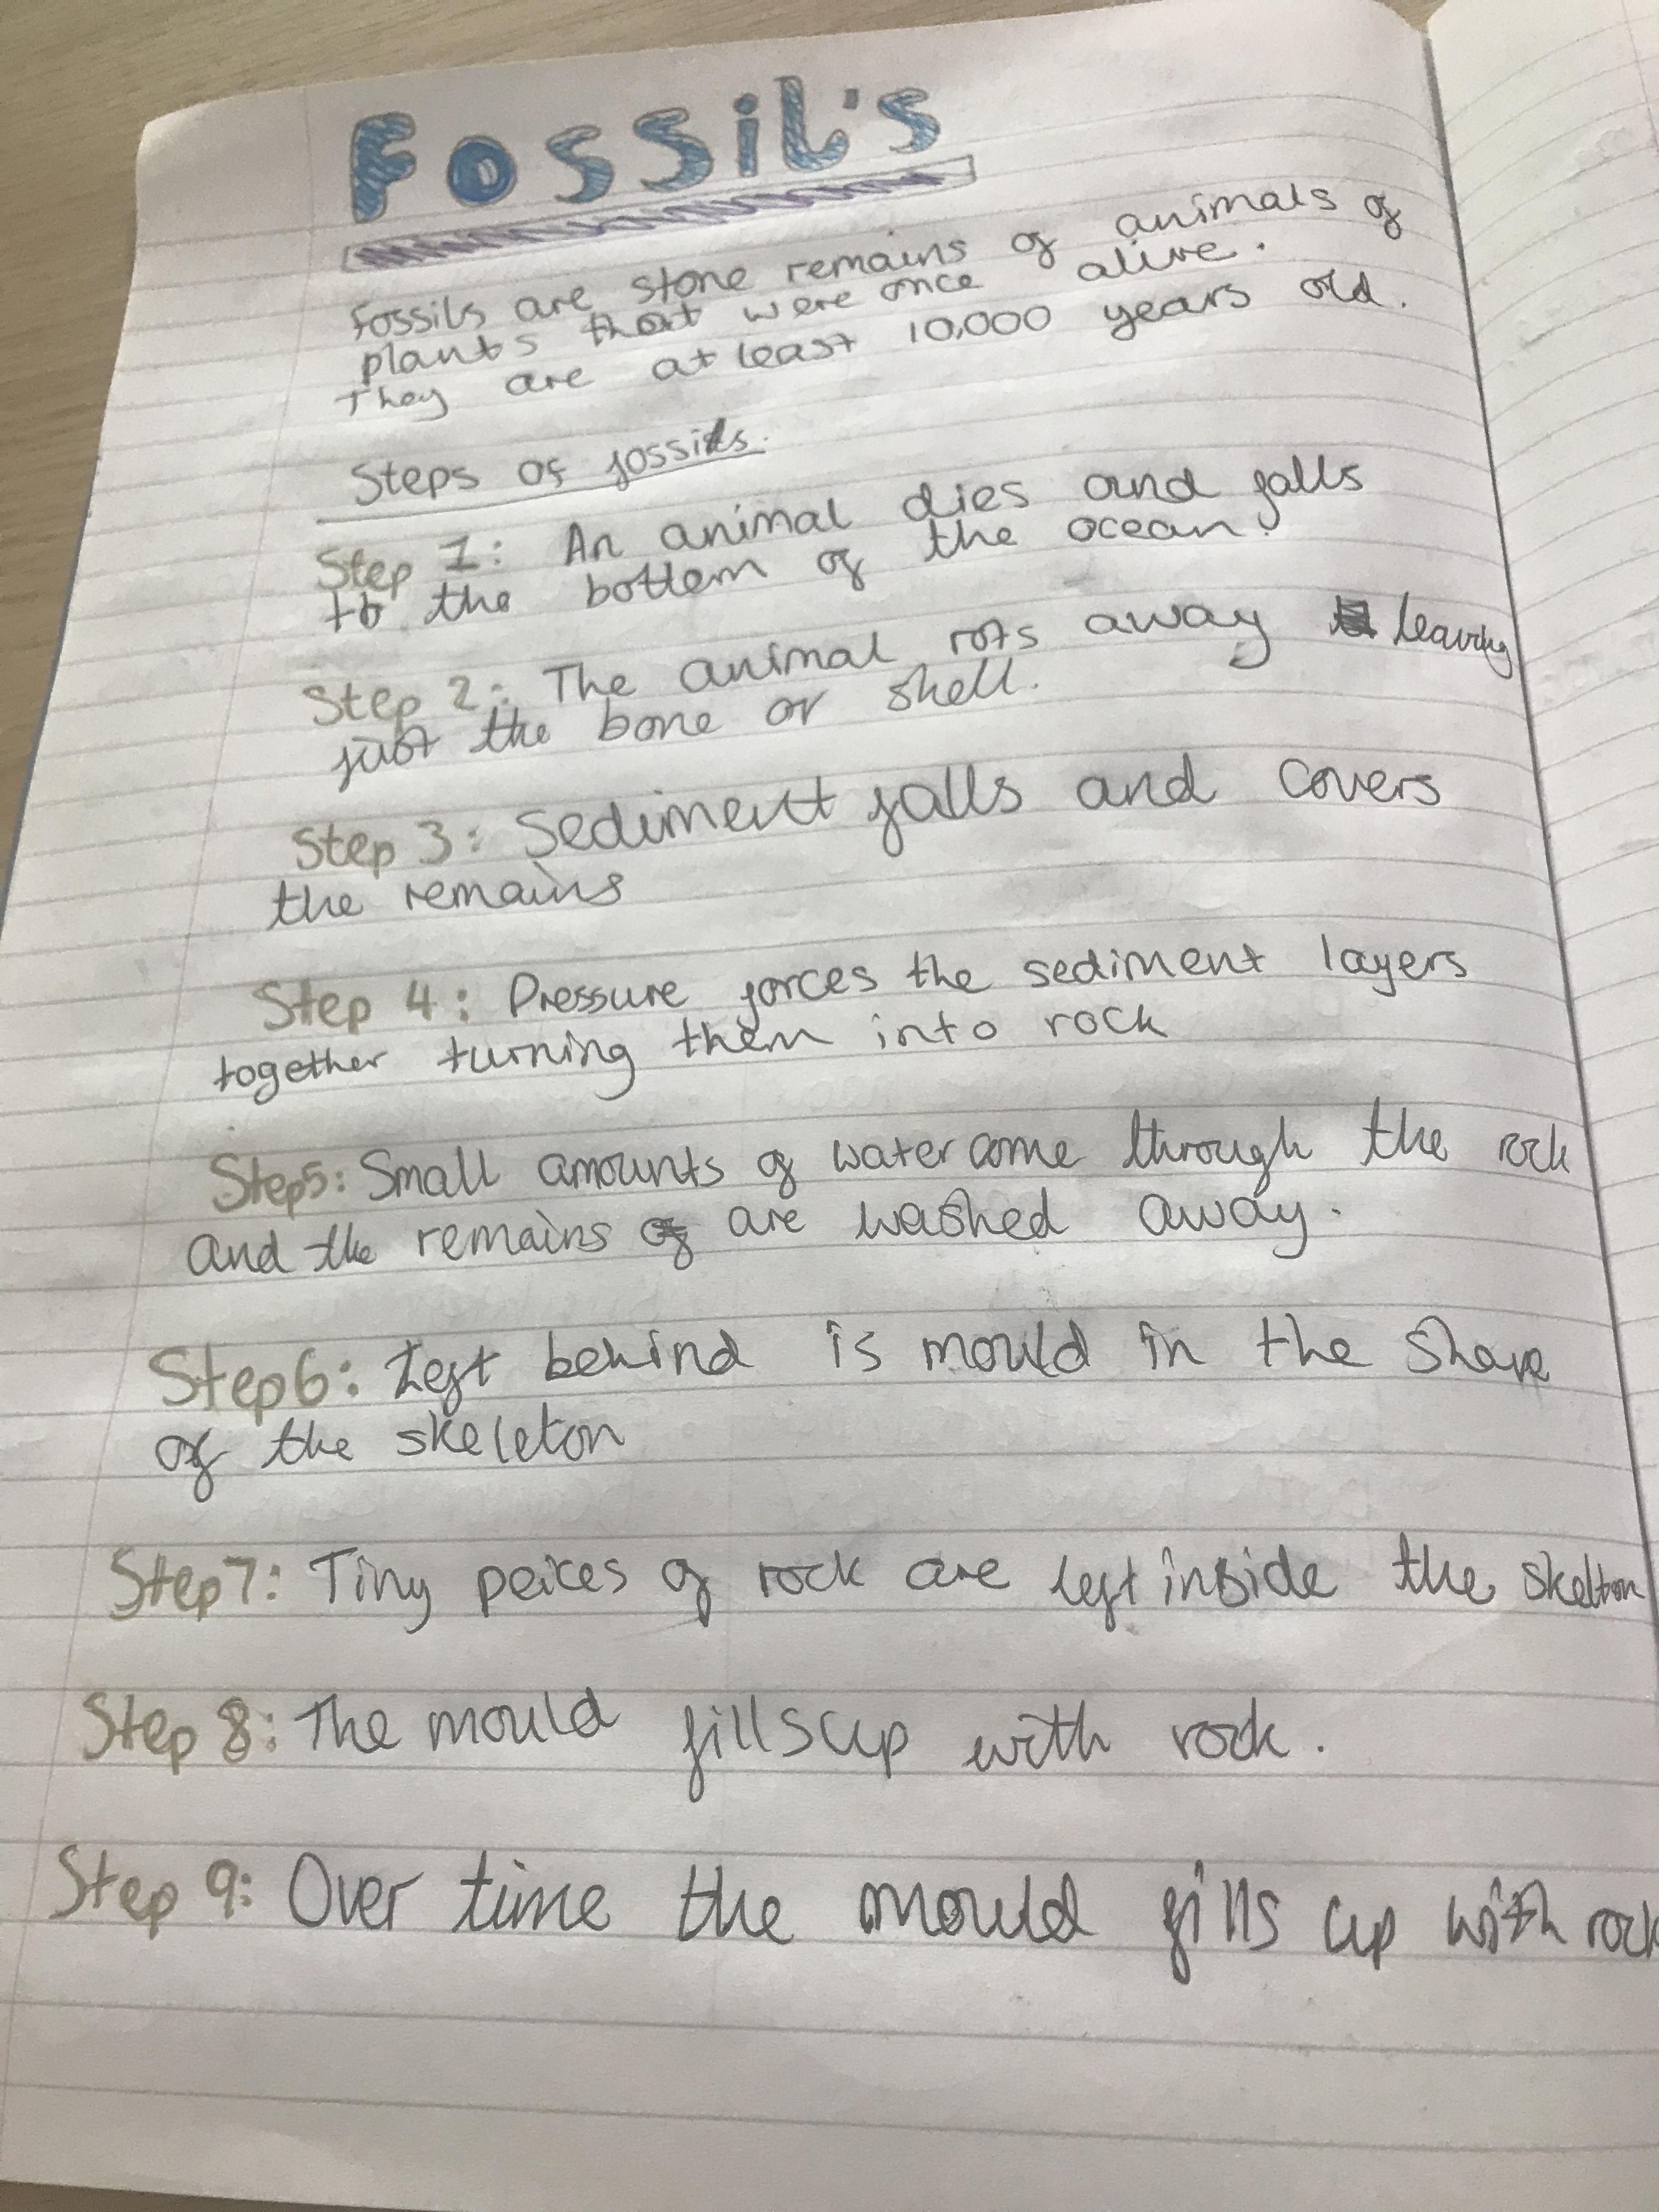 Fossil's
Fossils are stone remains of animals of
plants that were once alive.
They are at least 10,000 years old.
Steps of fossils.
Step 1: An animal dies and falls
to the bottem of the ocean.
Step 2: The animal rots away leaving
just the bone or shell.
Step 3: Sediment falls and covers
the remains
Step 4: Pressure forces the sediment layers
together turning them into rock
Step5: Small amounts of water come through the rock
and the remains are washed away.
Step6: Left behind is mould in the shape
of the skeleton
Step7: Tiny peices of rock are left inside the skelton
Step 8: The mould fills up with rock.
Step 9: Over time the mould fills up with rock